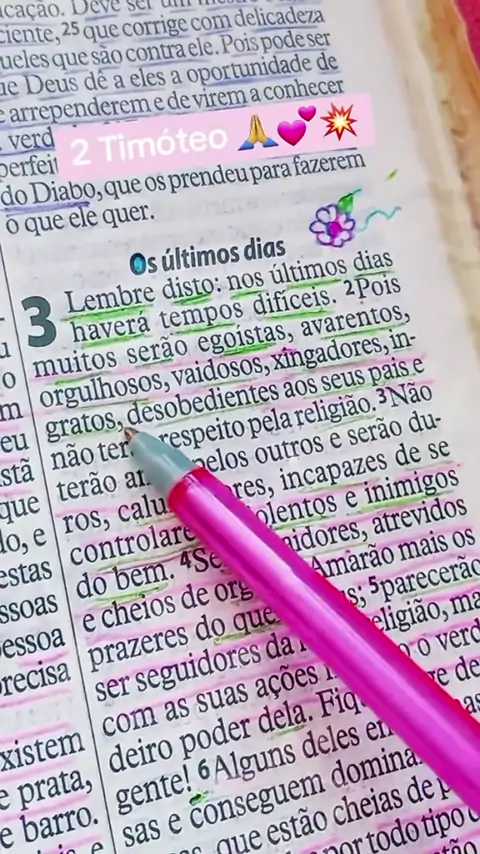 cação. Deve ser um
ciente, 25 que corrige com delicadeza
queles que são contra ele. Pois pode ser
ue Deus dê a eles a oportunidade de
e arrependerem e de virem a conhecer
verd
2 Timóteo 🙏💕💥
perfei
do Diabo, que os prendeu para fazerem
o que ele quer.
Os últimos dias
3 Lembre disto: nos últimos dias
haverá tempos difíceis. 2Pois
muitos serão egoístas, avarentos,
orgulhosos, vaidosos, xingadores, in-
gratos, desobedientes aos seus pais e
não ter respeito pela religião. 3Não
terão am pelos outros e serão du-
ros, calu res, incapazes de se
controlare olentos e inimigos
do bem. 4Se idores, atrevidos
e cheios de org Amarão mais os
prazeres do que s; 5parecerão
ser seguidores da eligião, ma
com as suas ações o verd
deiro poder dela. Fiq e de
gente! 6Alguns deles en
sas e conseguem domina
que estão cheias de p
por todo tipo
u
o
m
eu
stã
que
do, e
estas
ssoas
essoa
recisa
xistem
e prata,
e barro.